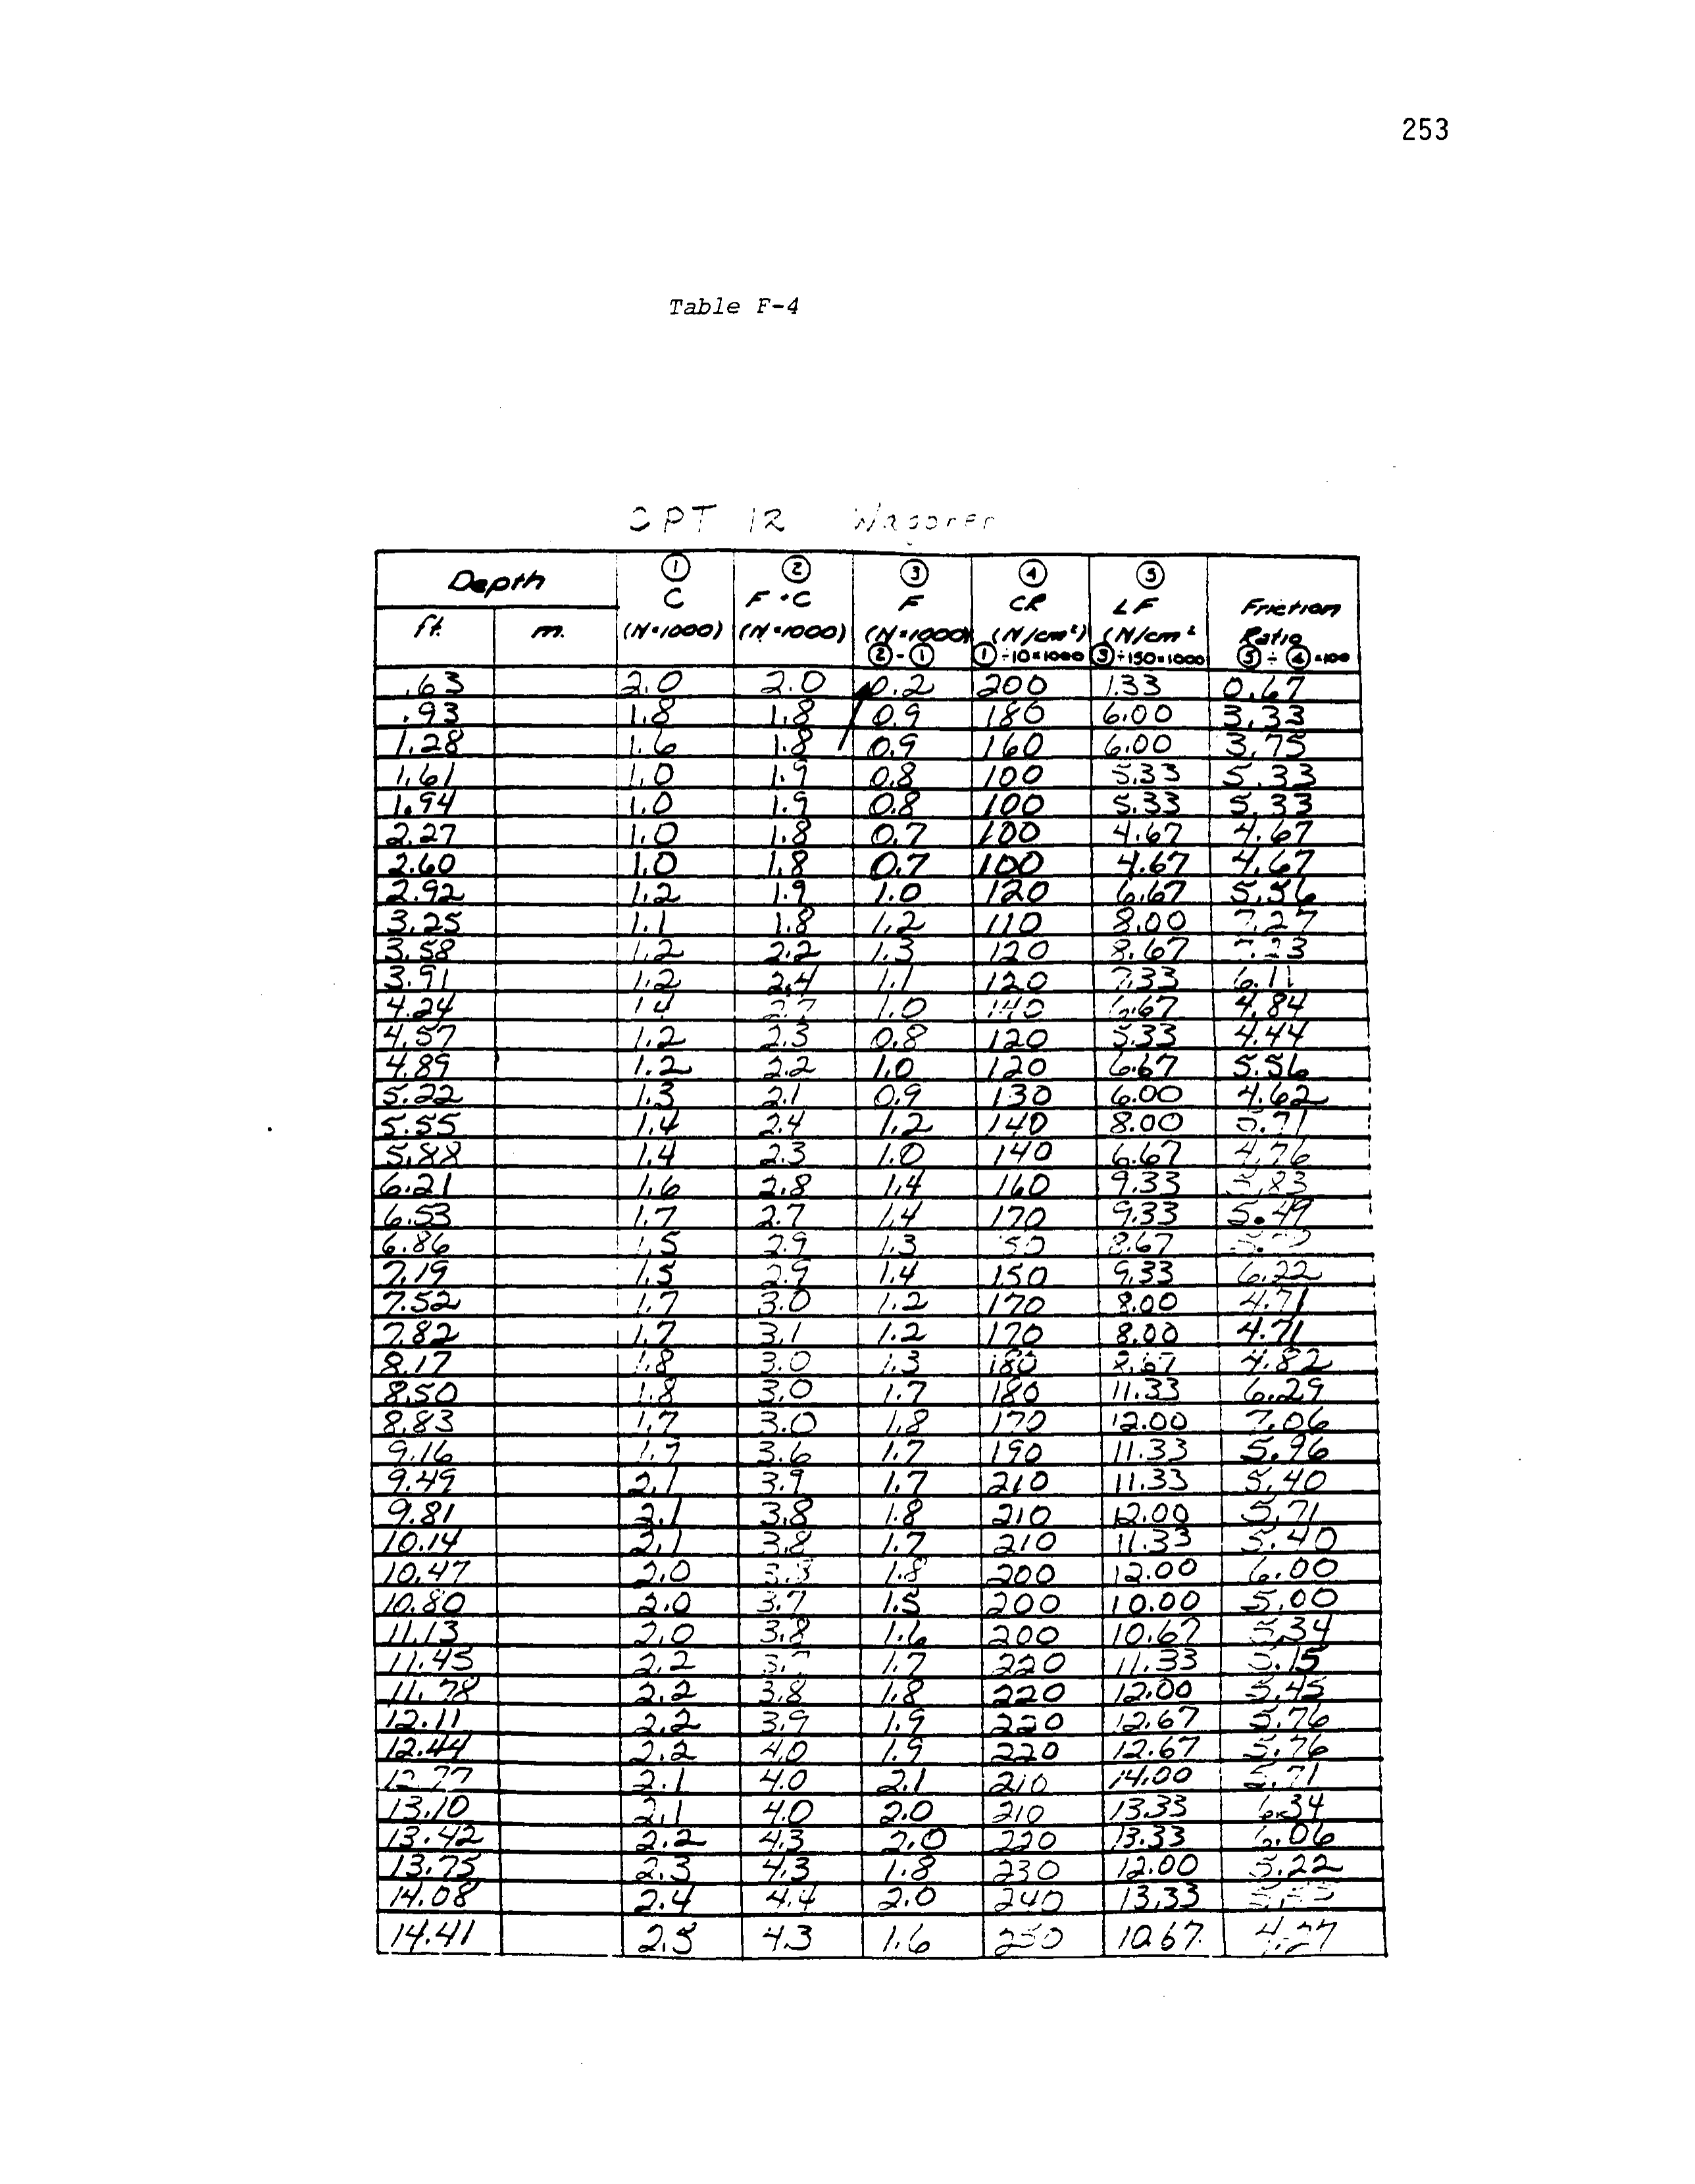 253
Table F-4
CPT 12 Wagoner
Depth ① C ② F+C ③ F ④ CR ⑤ LF Friction Ratio
ft. m. (N×1000) (N×1000) (N×1000) (N/cm²) (N/cm²
②-① ①÷10×1000 ③÷150×1000 ⑤÷④×100
.63 2.0 2.0 0.2 200 1.33 0.67
.93 1.8 1.8 0.9 180 6.00 3.33
1.28 1.6 1.8 0.9 160 6.00 3.75
1.61 1.0 1.9 0.8 100 5.33 5.33
1.94 1.0 1.9 0.8 100 5.33 5.33
2.27 1.0 1.8 0.7 100 4.67 4.67
2.60 1.0 1.8 0.7 100 4.67 4.67
2.92 1.2 1.9 1.0 120 6.67 5.56
3.25 1.1 1.8 1.2 110 8.00 7.27
3.58 1.2 2.2 1.3 120 8.67
3.91 1.2 2.4 1.1 120 7.33 6.11
4.24 1.4 2.7 1.0 140 6.67 4.84
4.57 1.2 2.3 0.8 120 5.33 4.44
4.89 1.2 2.2 1.0 120 6.67 5.56
5.22 1.3 2.1 0.9 130 6.00 4.62
5.55 1.4 2.4 1.2 140 8.00 5.71
5.88 1.4 2.3 1.0 140 6.67 4.76
6.21 1.6 2.8 1.4 160 9.33 5.83
6.53 1.7 2.7 1.4 170 9.33 5.49
6.86 1.5 2.9 1.3 150 8.67
7.19 1.5 2.9 1.4 150 9.33 6.22
7.52 1.7 3.0 1.2 170 8.00 4.71
7.82 1.7 3.1 1.2 170 8.00 4.71
8.17 1.8 3.0 1.3 180 8.67 4.82
8.50 1.8 3.0 1.7 180 11.33 6.29
8.83 1.7 3.0 1.8 170 12.00 7.06
9.16 1.9 3.6 1.7 190 11.33 5.96
9.49 2.1 3.9 1.7 210 11.33 5.40
9.81 2.1 3.8 1.8 210 12.00 5.71
10.14 2.1 3.8 1.7 210 11.33 5.40
10.47 2.0 3.8 1.8 200 12.00 6.00
10.80 2.0 3.7 1.5 200 10.00 5.00
11.13 2.0 3.8 1.6 200 10.67 5.34
11.45 2.2 3.7 1.7 220 11.33 5.15
11.78 2.2 3.8 1.8 220 12.00 5.45
12.11 2.2 3.9 1.9 220 12.67 5.76
12.44 2.2 4.0 1.9 220 12.67 5.76
12.77 2.1 4.0 2.1 210 14.00
13.10 2.1 4.0 2.0 210 13.33 6.34
13.42 2.2 4.3 2.0 220 13.33 6.06
13.75 2.3 4.3 1.8 230 12.00 5.22
14.08 2.4 4.4 2.0 240 13.33
14.41 2.5 4.3 1.6 250 10.67 4.27